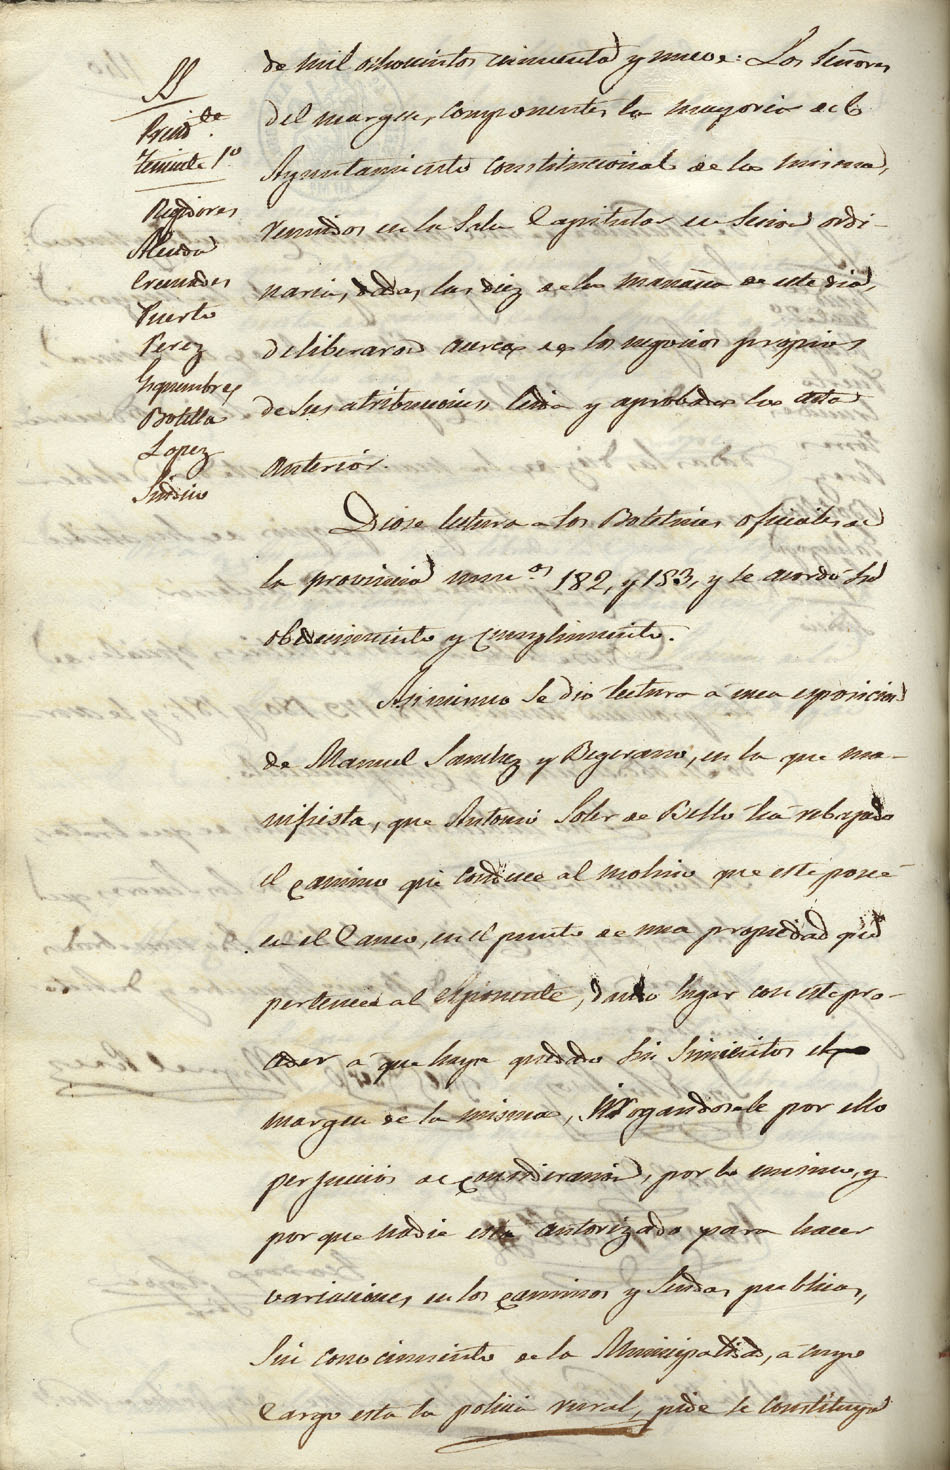 SS
Presid.te
Teniente 1º
Regidores
Alenda
Cremades
Puerto
Perez
Botella
Lopez
Sindico
de mil ochocientos cincuenta y nueve: Los Señores
del margen, componentes la mayoria del
Ayuntamiento constitucional de la misma,
reunidos en la Sala Capitular en Sesion ordi-
naria, dadas las diez de la mañana de este dia,
deliberaron acerca de los negocios propios
de sus atribuciones, leida y aprobada la acta
anterior.
Diose lectura a los Boletines oficiales de
la provincia num.os 182, y 183, y se acordó su
obedecimiento y cumplimiento.
Asimismo se dio lectura á una esposicion
de Manuel Sanchez y Begerano, en la que ma-
nifiesta, que Antonio Soler de Bello ha rebajado
el camino que conduce al molino que este posee
en el , en el punto de una propiedad que
pertenece al esponente, dando lugar con este pro-
ceder á que haya quedado sin simientos el
margen de la misma, irrogandosele por ello
perjuicios de consideracion, por lo mismo, y
porque nadie esta autorizado para hacer
variaciones, en los caminos y sendas publicas,
sin conocimiento de la Municipalidad, á cuyo
cargo esta la policia rural, pide se constituya